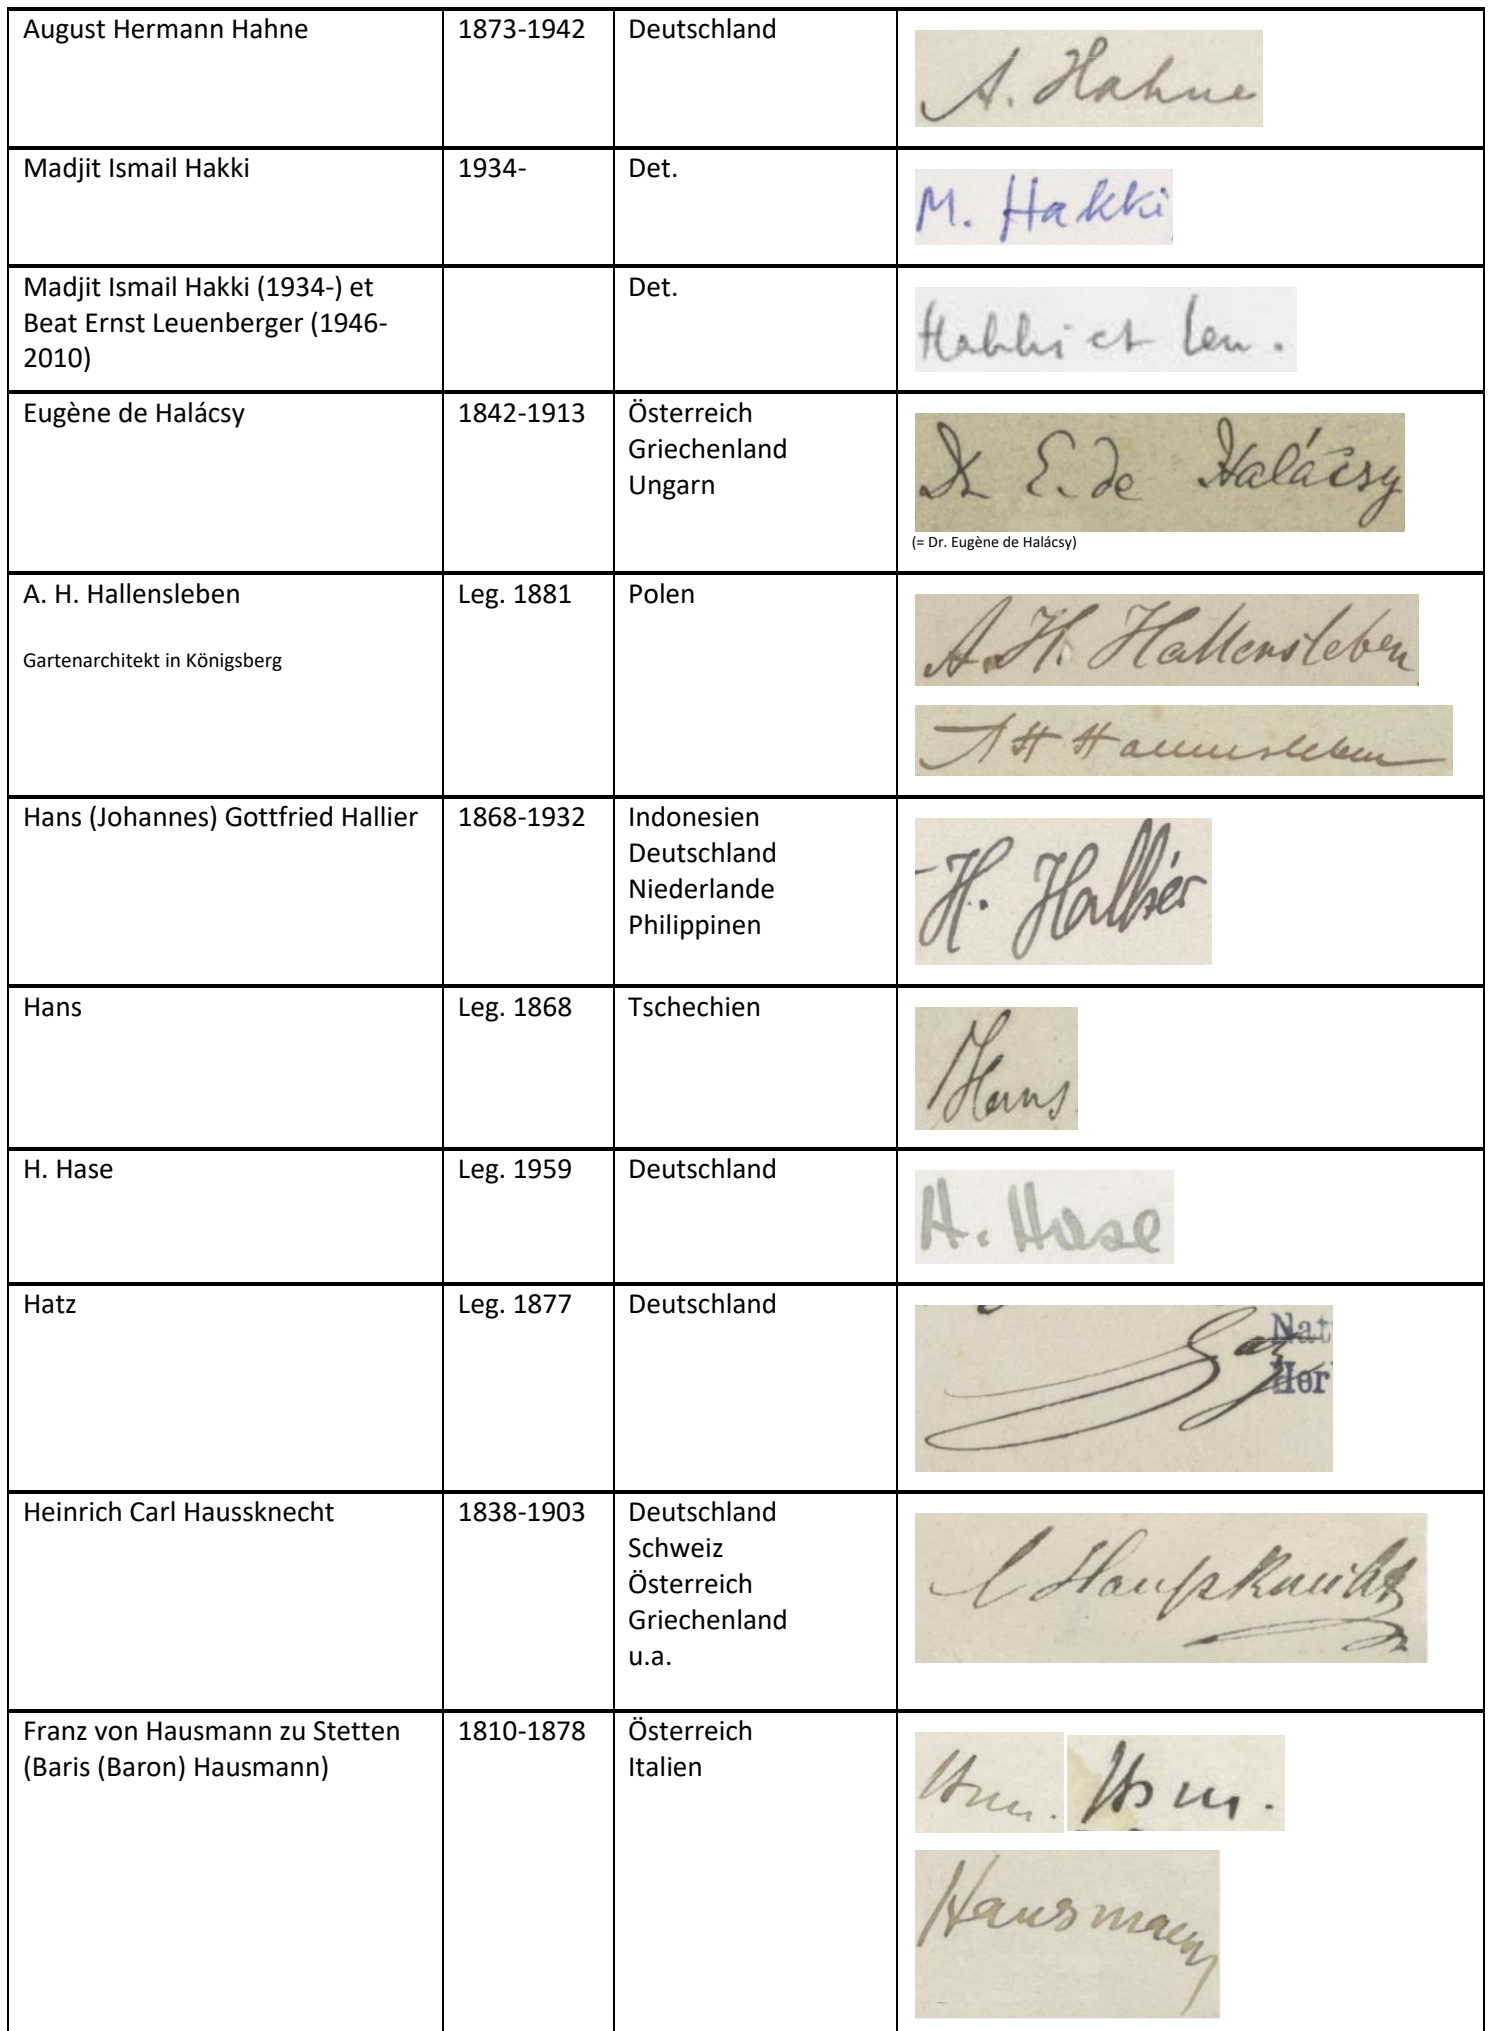 August Hermann Hahne 1873-1942 Deutschland
A. Hahne
Madjit Ismail Hakki 1934- Det.
M. Hakki
Madjit Ismail Hakki (1934-) et Det.
Beat Ernst Leuenberger (1946-
2010)
Hakki et Leu.
Eugène de Halácsy 1842-1913 Österreich
Griechenland
Ungarn
Dr E. de Halácsy
(= Dr. Eugène de Halácsy)
A. H. Hallensleben Leg. 1881 Polen
Gartenarchitekt in Königsberg
A. H. Hallensleben
A H Hallensleben
Hans (Johannes) Gottfried Hallier 1868-1932 Indonesien
Deutschland
Niederlande
Philippinen
H. Hallier
Hans Leg. 1868 Tschechien
Hans
H. Hase Leg. 1959 Deutschland
H. Hase
Hatz Leg. 1877 Deutschland
Nat
Her
Heinrich Carl Haussknecht 1838-1903 Deutschland
Schweiz
Österreich
Griechenland
u.a.
C Haußknecht
Franz von Hausmann zu Stetten 1810-1878 Österreich
(Baris (Baron) Hausmann) Italien
Hsm. Hsm.
Hausmann